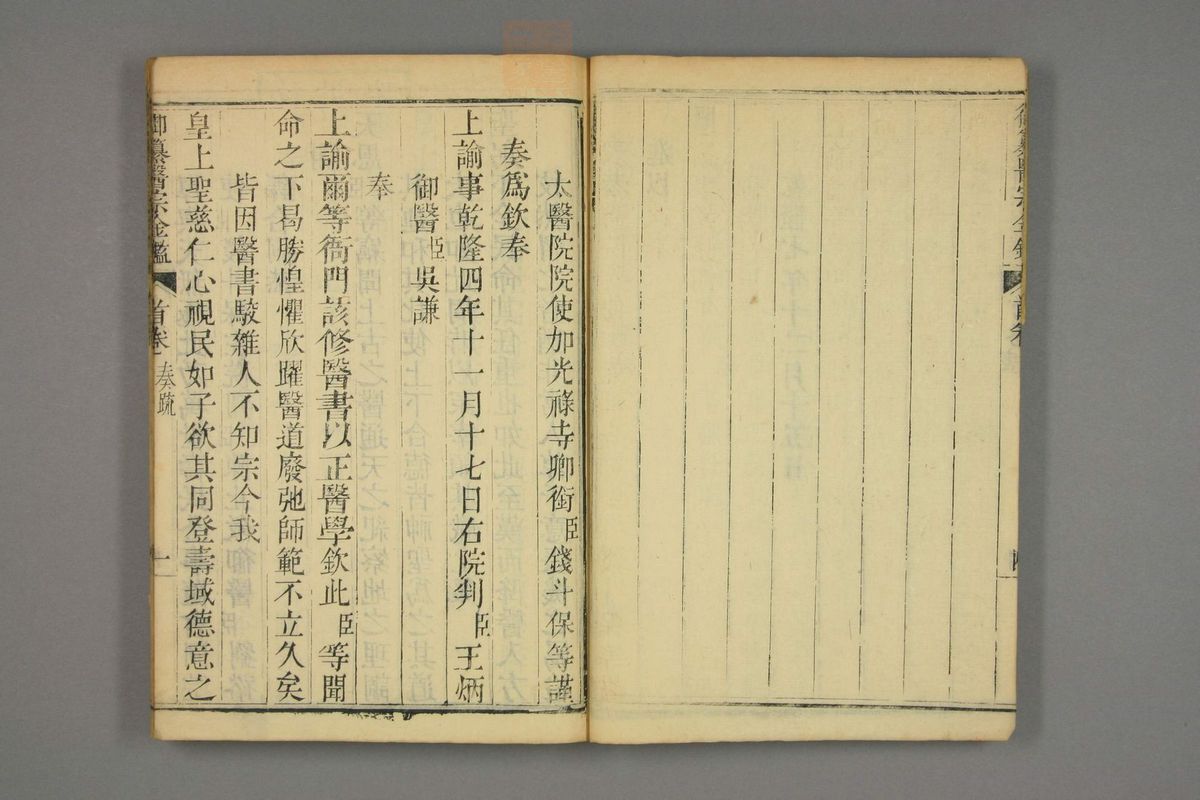 御纂醫宗金鑑 首卷
太醫院院使加光祿寺卿銜臣錢斗保等謹
奏爲欽奉
上諭事乾隆四年十一月十七日右院判臣王炳
御醫臣吳謙
奉
上諭爾等衙門該修醫書以正醫學欽此臣等聞
命之下曷勝惶懼欣躍醫道廢弛師範不立久矣
皆因醫書駁雜人不知宗今我
皇上聖慈仁心視民如子欲其同登壽域德意之
御纂醫宗金鑑 首卷 奏疏 一